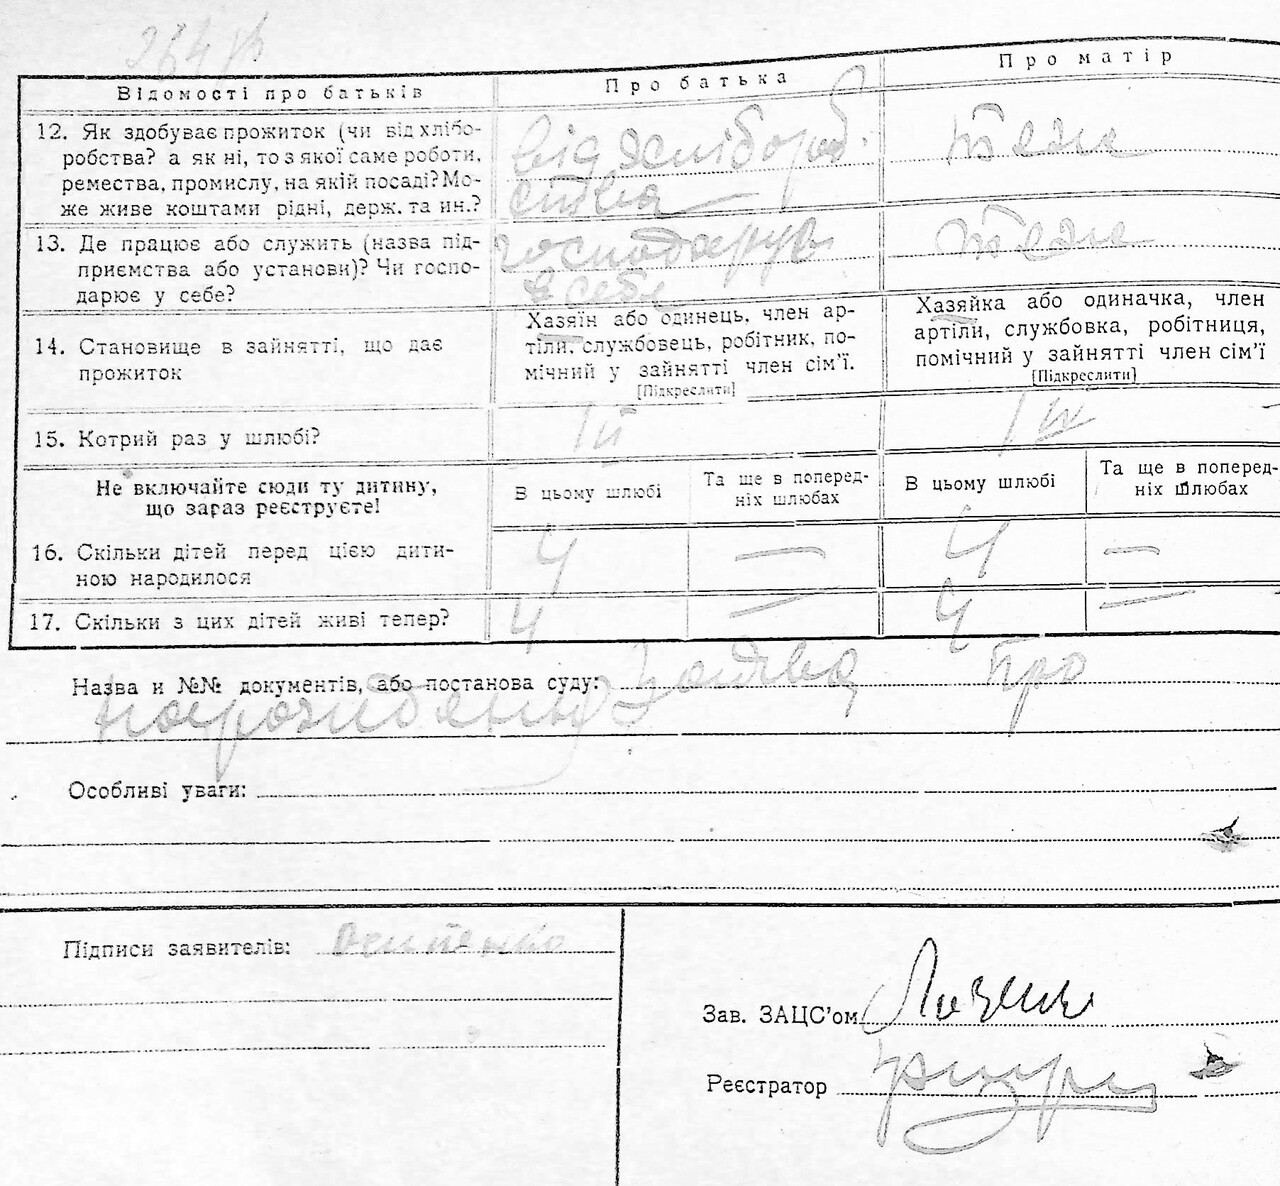 Відомості про батьків
Про батька
Про матір
12. Як здобуває прожиток (чи від хлібо-
робства? а як ні, то з якої саме роботи,
ремества, промислу, на якій посаді? Мо-
же живе коштами рідні, держ. та ин.?
від хлібороб.
ства
теж
13. Де працює або служить (назва під-
приємства або установи)? Чи госпо-
дарює у себе?
господарує
в себе
теж
14. Становище в зайнятті, що дає
прожиток
Хазяїн або одинець, член ар-
тіли, службовець, робітник, по-
мічний у зайнятті член сім’ї.
[Підкреслити]
Хазяйка або одиначка, член
артіли, службовка, робітниця,
помічний у зайнятті член сім’ї
[Підкреслити]
15. Котрий раз у шлюбі?
1й
1й
Не включайте сюди ту дитину,
що зараз реєструєте!
В цьому шлюбі
Та ще в поперед-
ніх шлюбах
В цьому шлюбі
Та ще в поперед-
ніх шлюбах
16. Скільки дітей перед цією дити-
ною народилося
4 — 4 —
17. Скільки з цих дітей живі тепер?
4 — 4 —
Назва и №№ документів, або постанова суду: Заява про
народження
Особливі уваги:
Підписи заявителів:
Зав. ЗАЦС’ом
Реєстратор